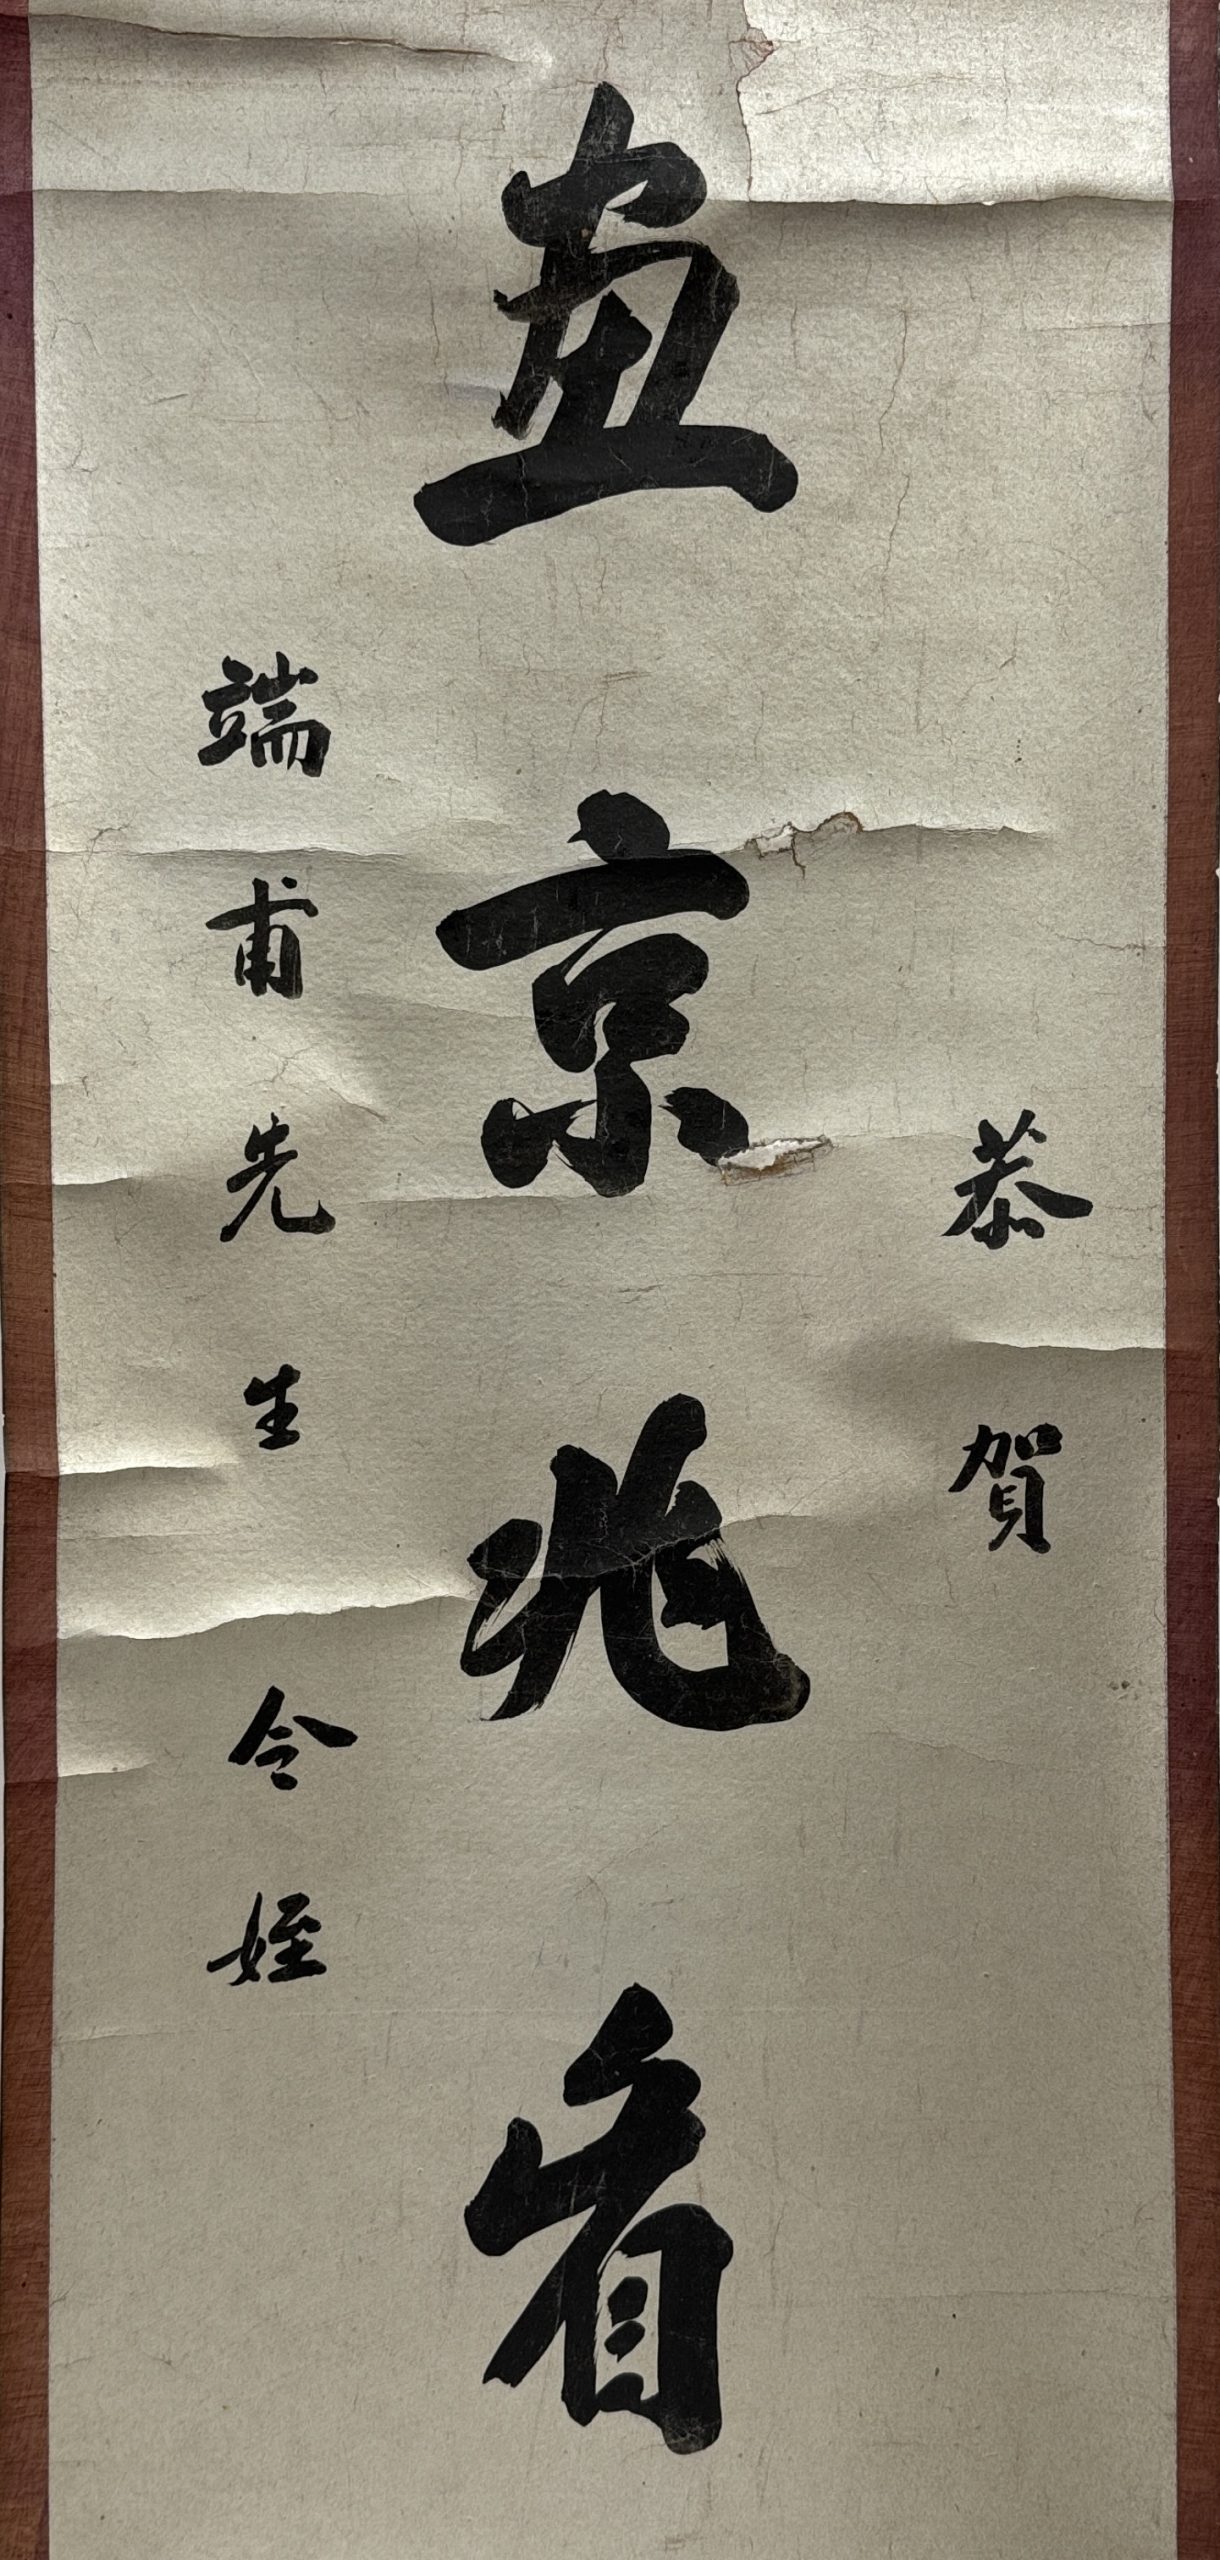 恭賀
畫京兆眉
端甫先生令姪